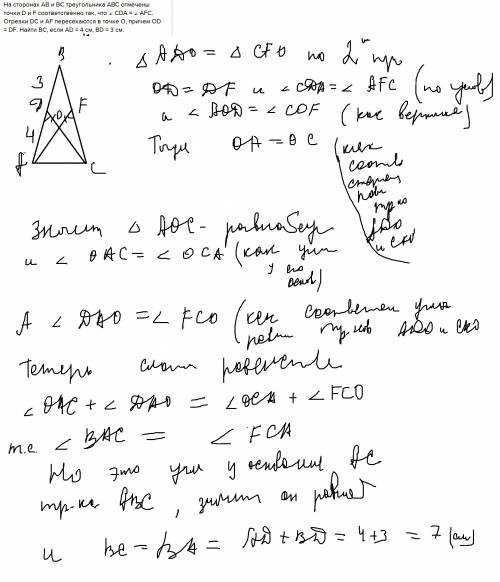 На сторонах АВ и ВС треугольника АВС отмечены
точки D и F соответственно так, что ∠ CDA = ∠ AFC.
Отрезки DC и AF пересекаются в точке О, причем OD
= DF. Найти ВС, если AD = 4 см, BD = 3 см.
B
3
D
F
O
4
A
C
△ ADO = △ CFO по 2 пр
и ∠ CDA = ∠ AFC (по услов)
а ∠ AOD = ∠ COF (как вертикал)
Тогда OA = OC (как
соотв
сторон
равн
тр-ко
ADO
и CFO
Значит △ AOC - равнобедр
и ∠ OAC = ∠ OCA (как угли
у его
основ)
А ∠ DAO = ∠ FCO (как соответствен угли
равн тр-ков ADO и CFO
Теперь сложи равенства
∠ OAC + ∠ DAO = ∠ OCA + ∠ FCO
т.е. ∠ BAC = ∠ FCA
Но это угли у основание AC
тр-ка ABC, значит он равноб
и BC = BA = AD + BD = 4+3 = 7 (см)